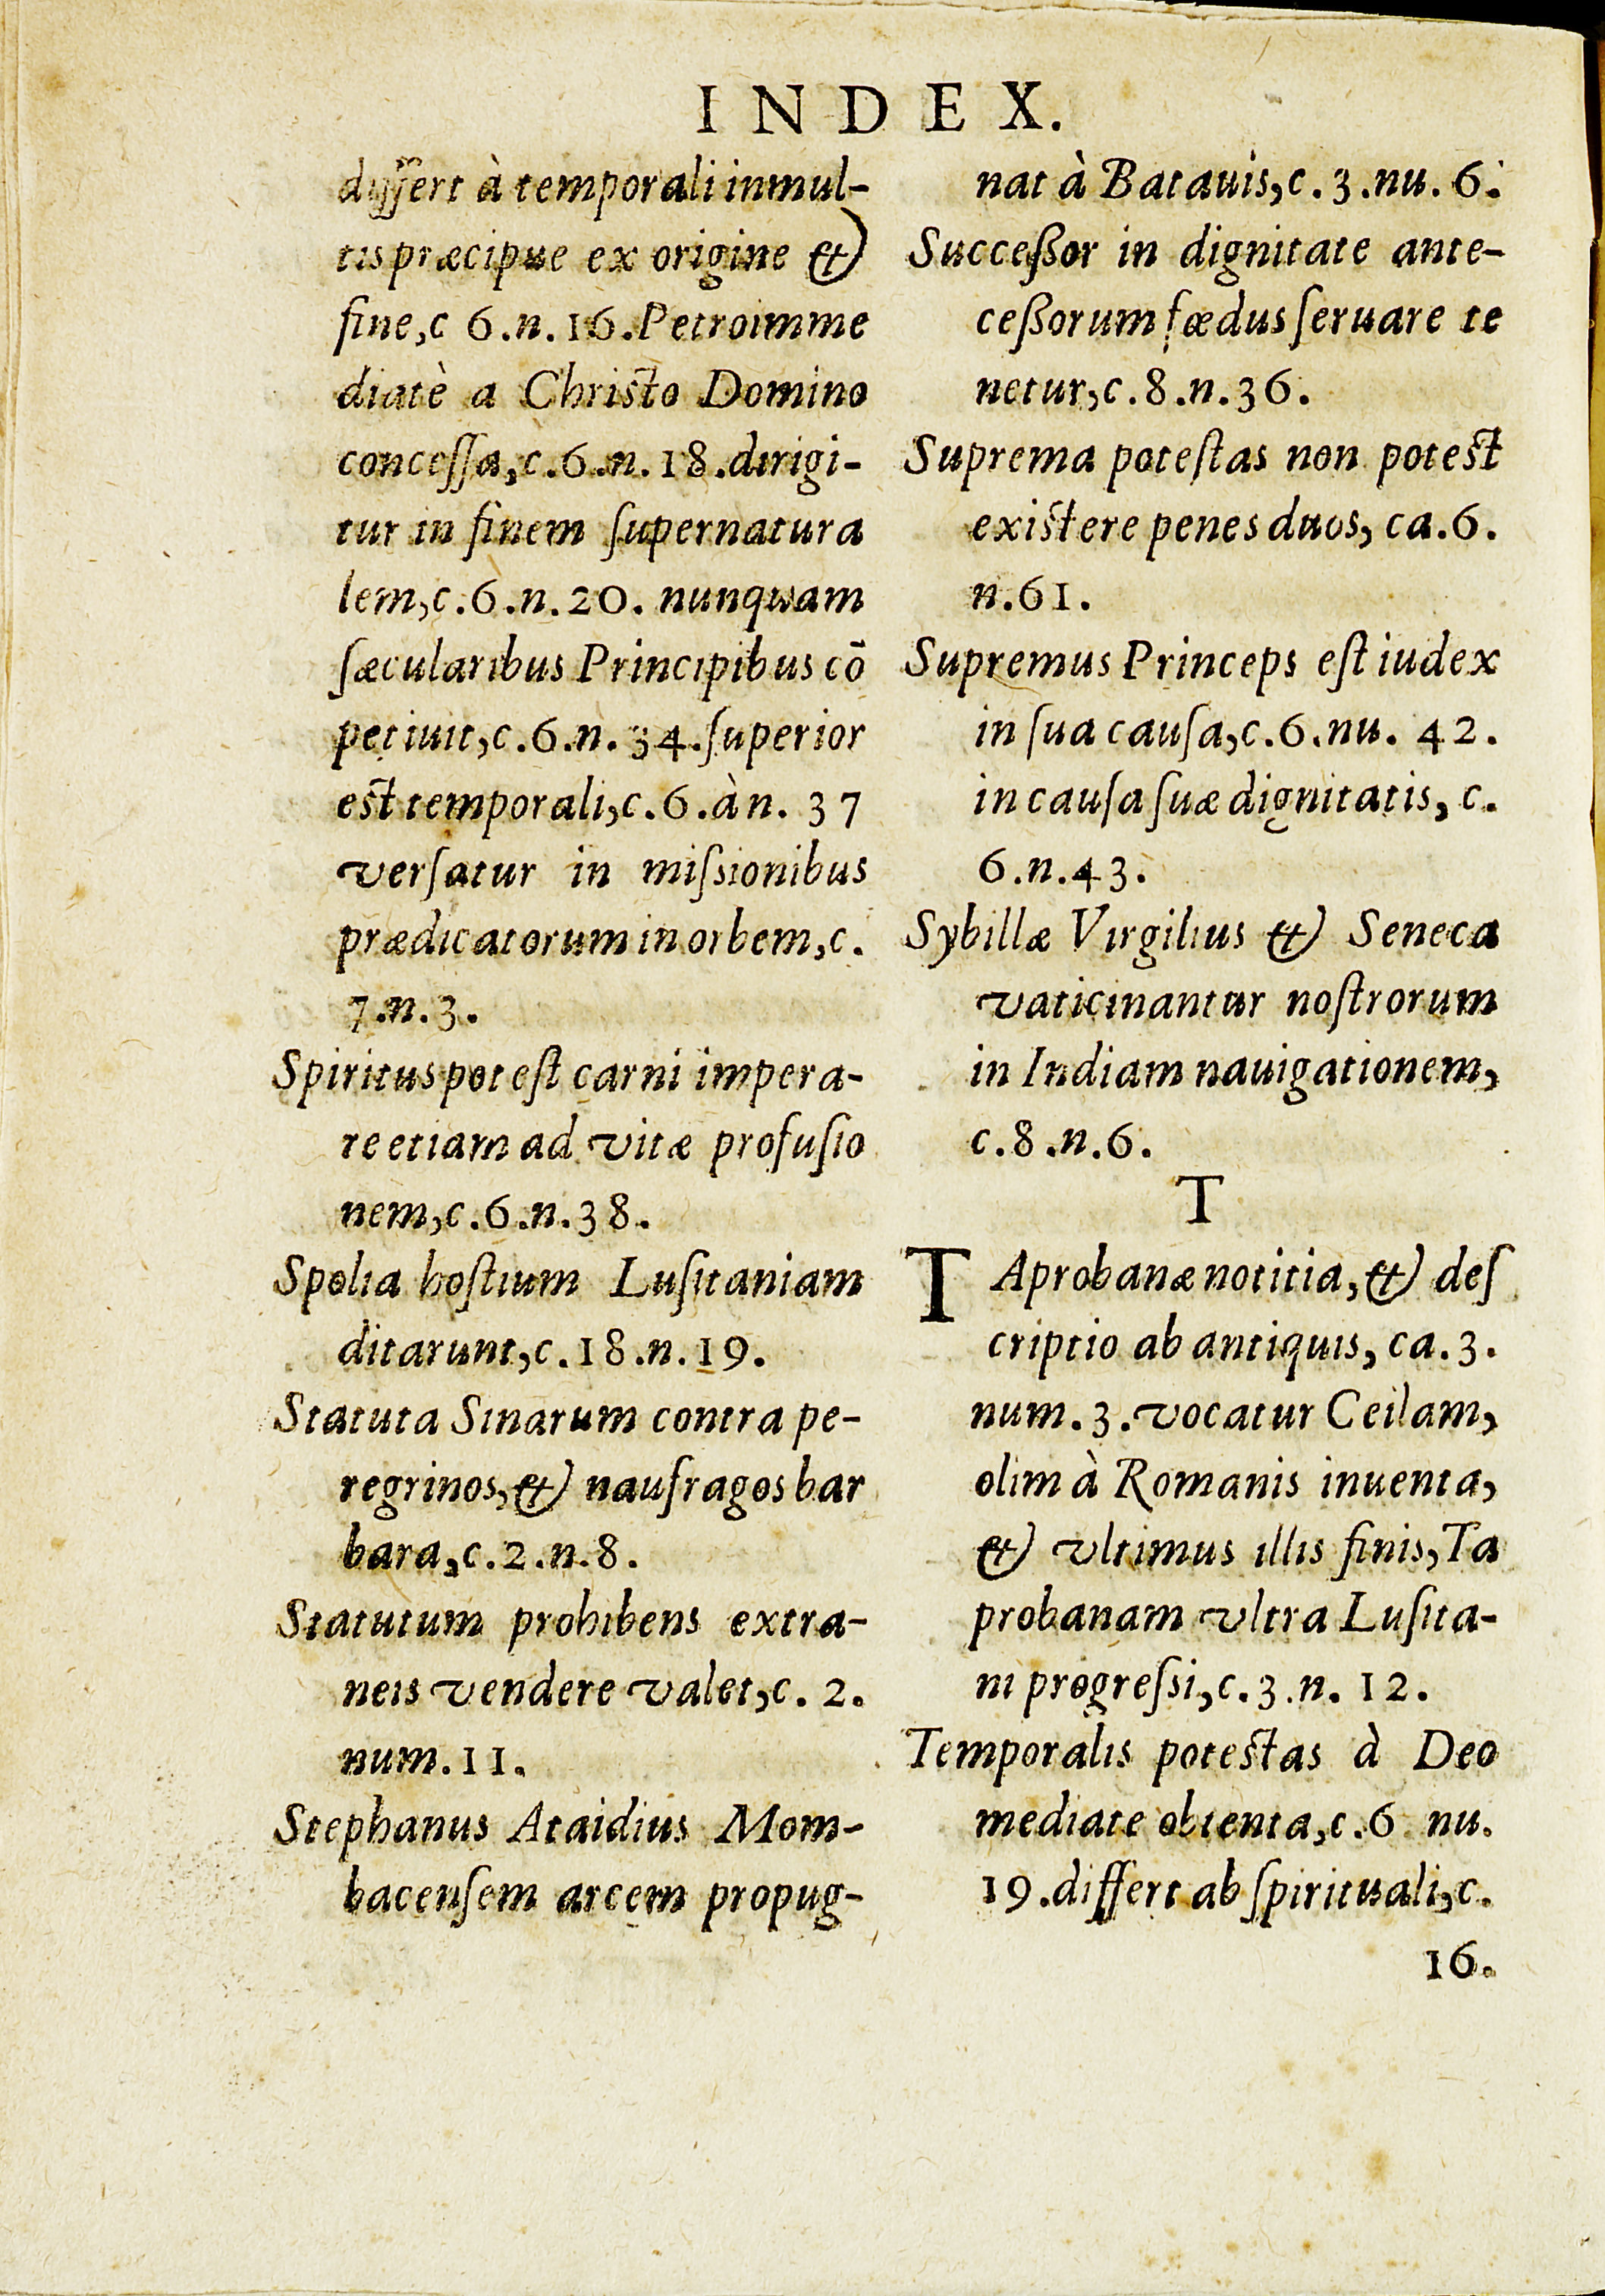 INDEX.
differt à temporali in mul-
tis præcipue ex origine &
fine, c 6.n.16. Petro imme
diatè a Christo Domino
concessa, c.6.n.18. dirigi-
tur in finem supernatura
lem, c.6.n.20. nunquam
sæcularibus Principibus cō
petiuit, c.6.n.34. superior
est temporali, c.6. à n. 37
versatur in missionibus
prædicatorum in orbem, c.
7.n.3.
Spiritus potest carni impera-
re etiam ad vitæ profusio
nem, c.6.n.38.
Spolia hostium Lusitaniam
ditarunt, c.18.n.19.
Statuta Sinarum contra pe-
regrinos, & naufragos bar
bara, c.2.n.8.
Statutum prohibens extra-
neis vendere valet, c. 2.
num.11.
Stephanus Ataidius Mom-
bacensem arcem propug-
nat à Batauis, c.3.nu.6.
Successor in dignitate ante-
cessorum fædus seruare te
netur, c.8.n.36.
Suprema potestas non potest
existere penes duos, ca.6.
n.61.
Supremus Princeps est iudex
in sua causa, c.6.nu. 42.
in causa suæ dignitatis, c.
6.n.43.
Sybillæ Virgilius & Seneca
vaticinantur nostrorum
in Indiam nauigationem,
c.8.n.6.
T
TAprobanæ notitia, & des
criptio ab antiquis, ca.3.
num.3. vocatur Ceilam,
olim à Romanis inuenta,
& vltimus illis finis, Ta
probanam vltra Lusita-
ni progressi, c.3.n. 12.
Temporalis potestas à Deo
mediate obtenta, c.6 nu.
19. differt ab spirituali, c.
16.